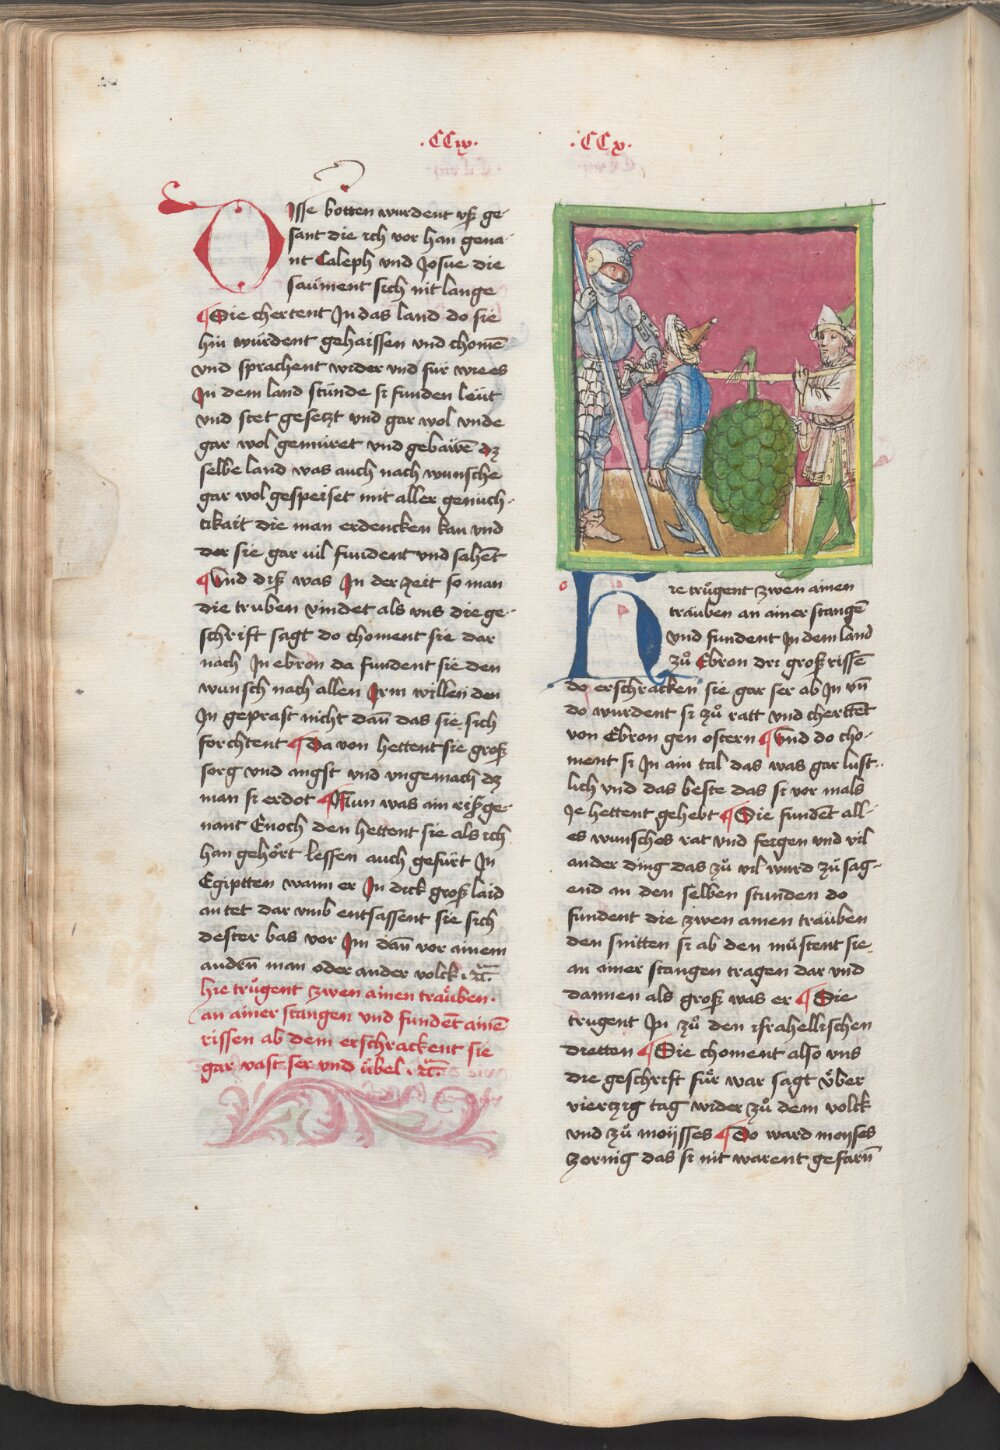 ·CCix·
Disse botten wurdent vß ge-
sant die ich vor han gena-
nt Caleph vnd Josue die
saument sich nit lange
Die chertent In das land do sie
hin wurdent gehaissen vnd chomē
vnd sprachent wider vnd für wie es
In dem land stünde si funden leüt
vnd stet gesetzt vnd gar wol vnde
gar wol gemüret vnd gebawē dz
selbe land was auch nach wunsche
gar wol gespeiset mit aller genüch-
tikait die man erdencken kan vnd
der sie gar uil fundent vnd sahēt
Vnd diß was In der zeit so man
die truben vindet als vns die ge-
schrift sagt do choment sie dar
nach In ebron da fundent sie den
wunsch nach allen Irm willen den
In geprast nicht dañ das sie sich
forchtent Da von hettent sie groß
sorg vnd angst vnd vngemach dz
man si erdot Nun was ain riß ge-
nant Enoch den hettent sie als ich
han gehört lessen auch gefürt In
Egiptten wann er In dick groß laid
an tet dar vmb entsassent sie sich
dester bas vor Im dañ vor ainem
andrn̄ man oder ander volck
hie trůgent zwen ainen traüben·
an ainer stangen vnd fundēt ainē
rissen ab dem erschrackent sie
gar vast ser vnd übel
·CCx·
re trůgent zwen ainen
trauben an ainer stangē
vnd fundent In dem land
zů Ebron dri groß rissē
do erschracken sie gar ser ab In vñ
do wurdent si zů ratt vnd chertēt
von Ebron gen ostern Vnd do cho-
ment si In ain tal das was gar lust-
lich vnd das beste das si vor mals
Je hettent gehebt Sie fundēt all-
es wunsches rat vnd feigen vnd vil
ander ding das zů vil wurd zů sag-
end an den selben stunden do
fundent die zwen ainen traüben
den snitten si ab den müstent sie
an ainer stangen tragen dar vnd
dannen als groß was er Sie
trugent In zů den israhellischen
dietten Sie choment also vns
die geschrift für war sagt über
viertzig tag wider zů dem volck
vnd zů moyses Do ward moyses
zornig das si nit warent gefarn̄